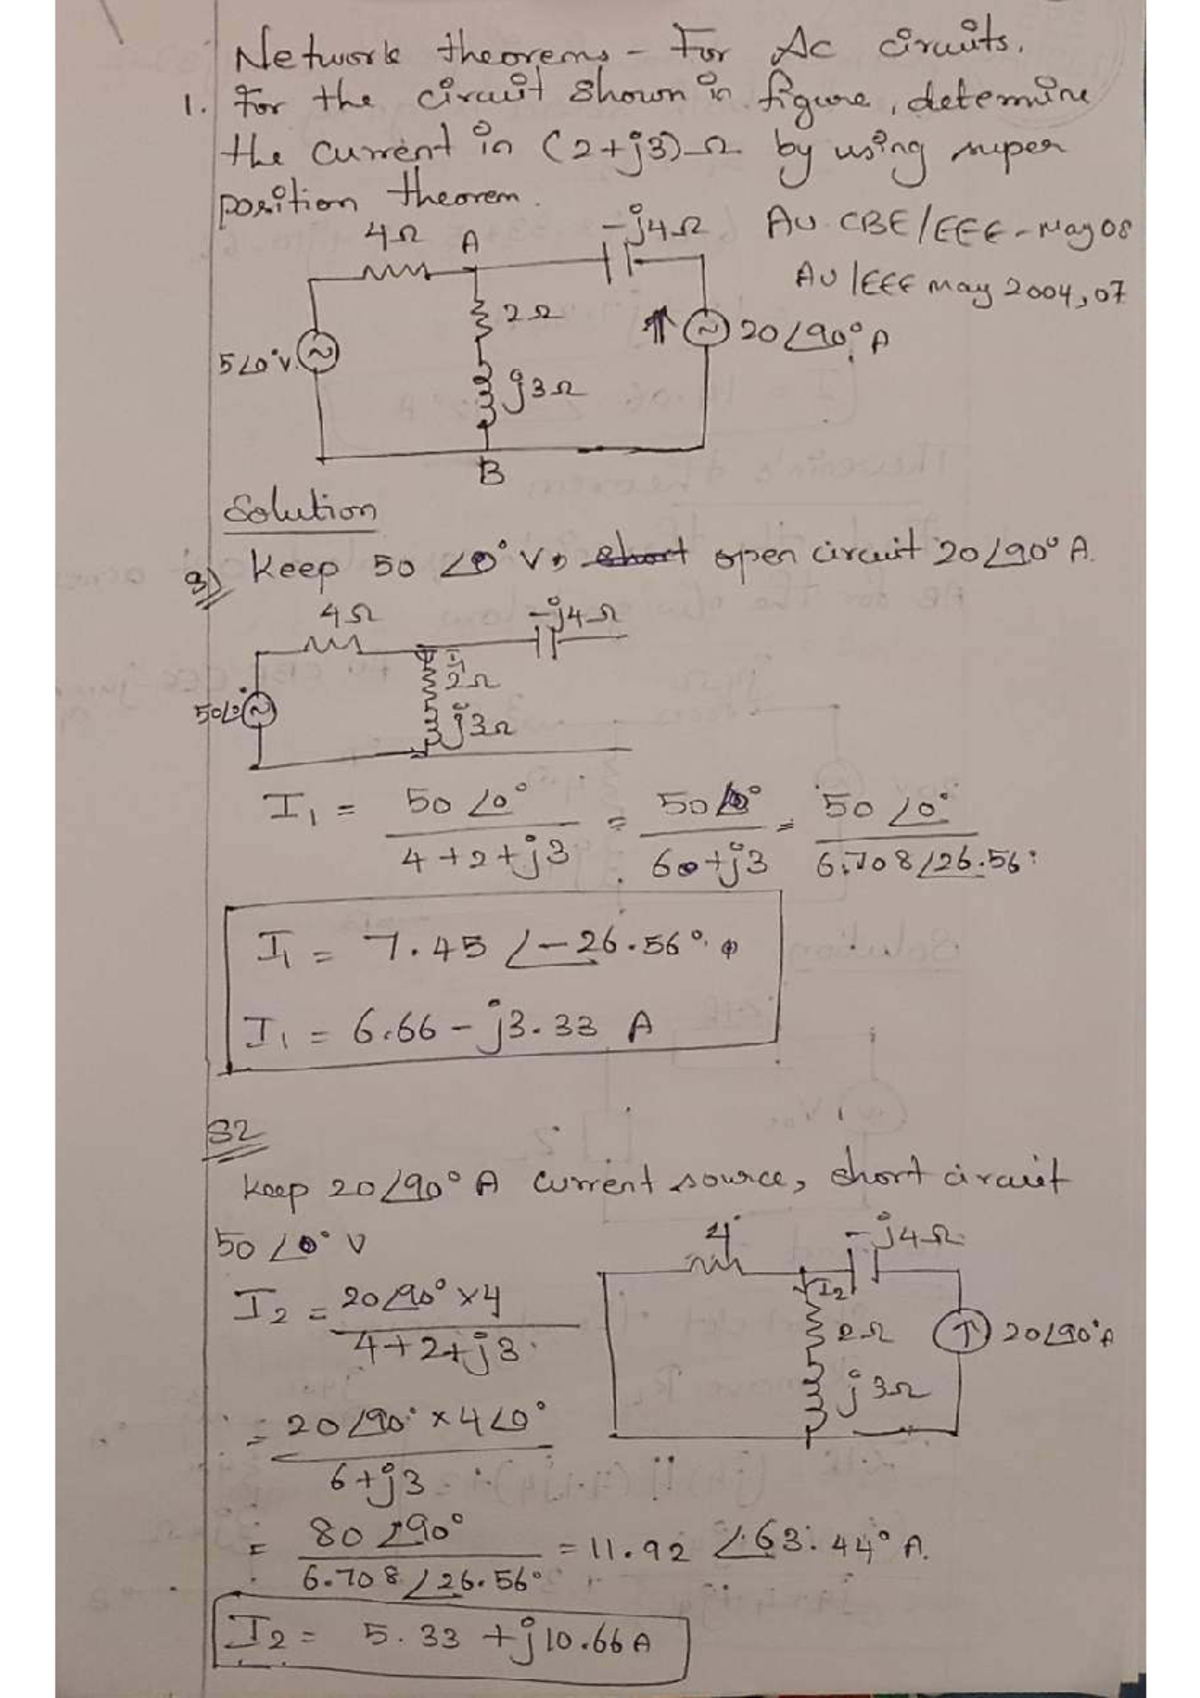 Network theorems - For Ac circuits.
1. For the circuit shown in figure, detemine
the current in (2+j3)Ω by using super
position theorem.
AU CBE/EEE - May 08
AU/EEE may 2004, 07
4Ω A -j4Ω
2Ω
5∠0°V. j3Ω 20∠90° A
B
Solution
Keep 50∠0° V, short open circuit 20∠90° A.
4Ω -j4Ω
I1
2Ω
50∠0° j3Ω
I1 = 50∠0° / 4+2+j3 = 50∠0° / 6+j3 = 50∠0° / 6.708∠26.56°
I1 = 7.45 ∠-26.56°
I1 = 6.66 - j3.33 A
S2
Keep 20∠90° A current source, short circuit
50∠0° V
4 -j4Ω
I2
2Ω 20∠90°A
j3Ω
I2 = 20∠90° × 4 / 4+2+j3
= 20∠90° × 4∠0° / 6+j3
= 80∠90° / 6.708∠26.56° = 11.92 ∠63.44° A.
I2 = 5.33 + j10.66 A